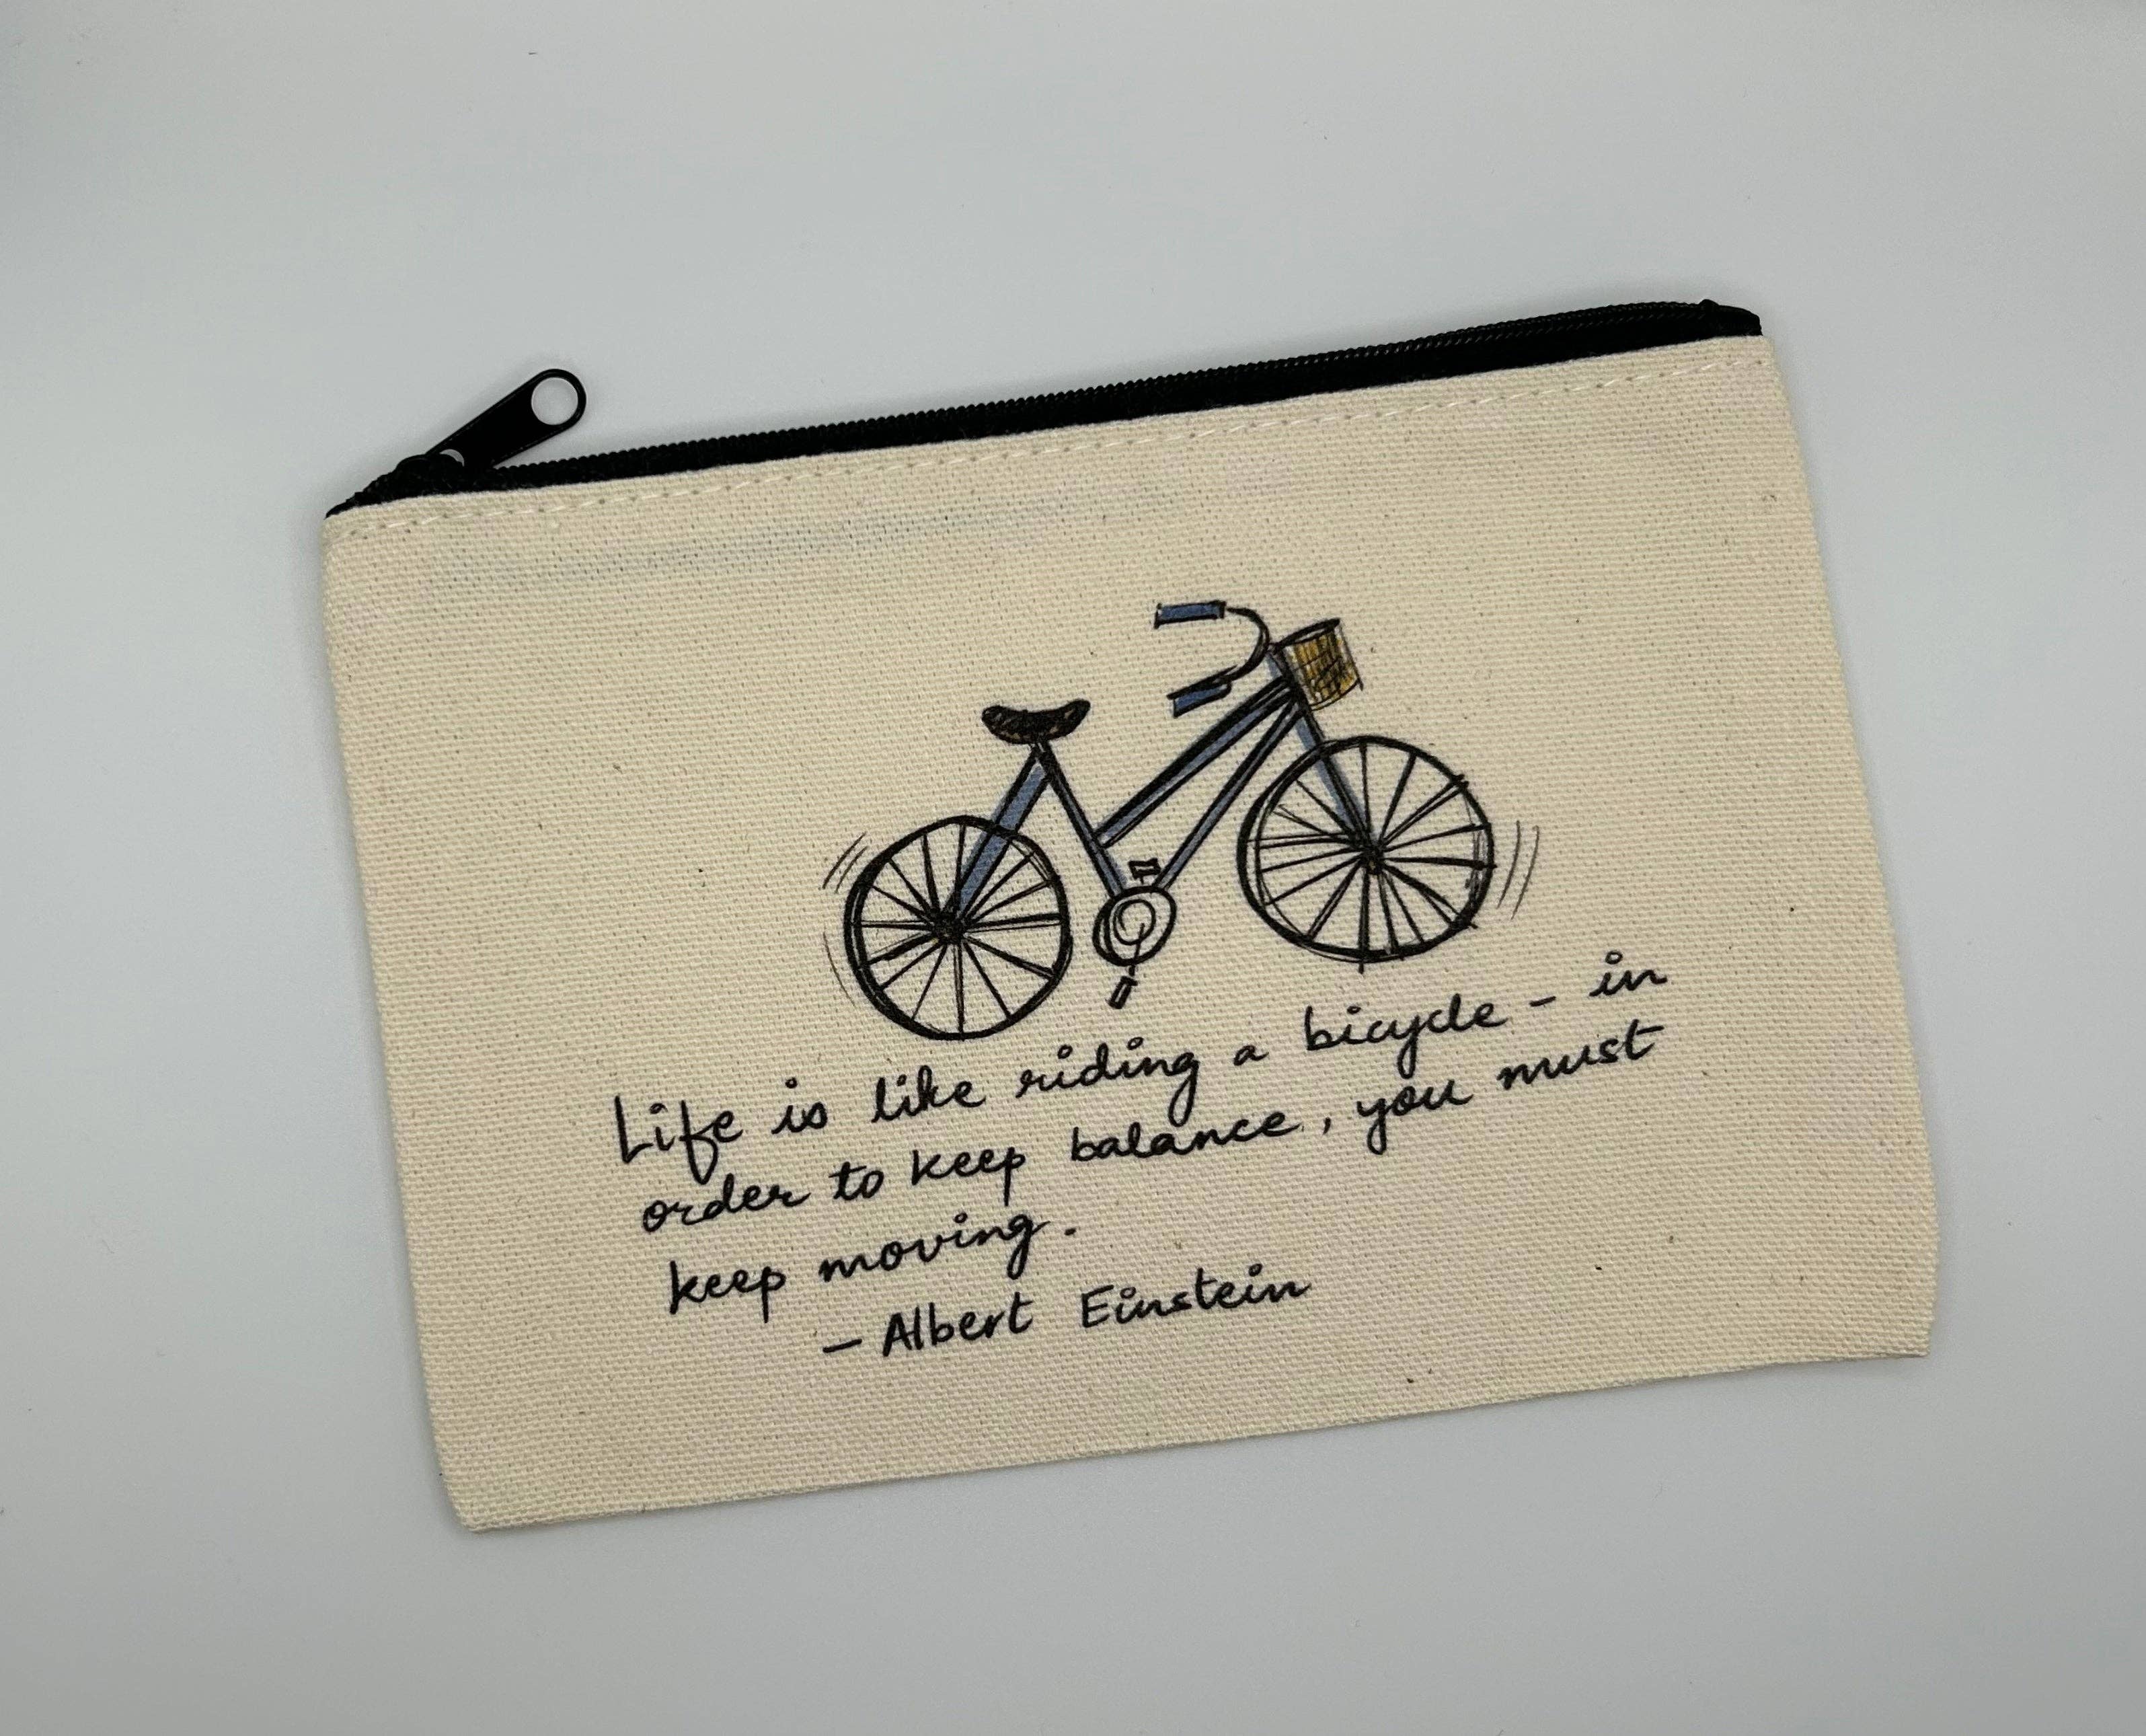 Life is like riding a bicycle - in
order to keep balance, you must
keep moving.
- Albert Einstein